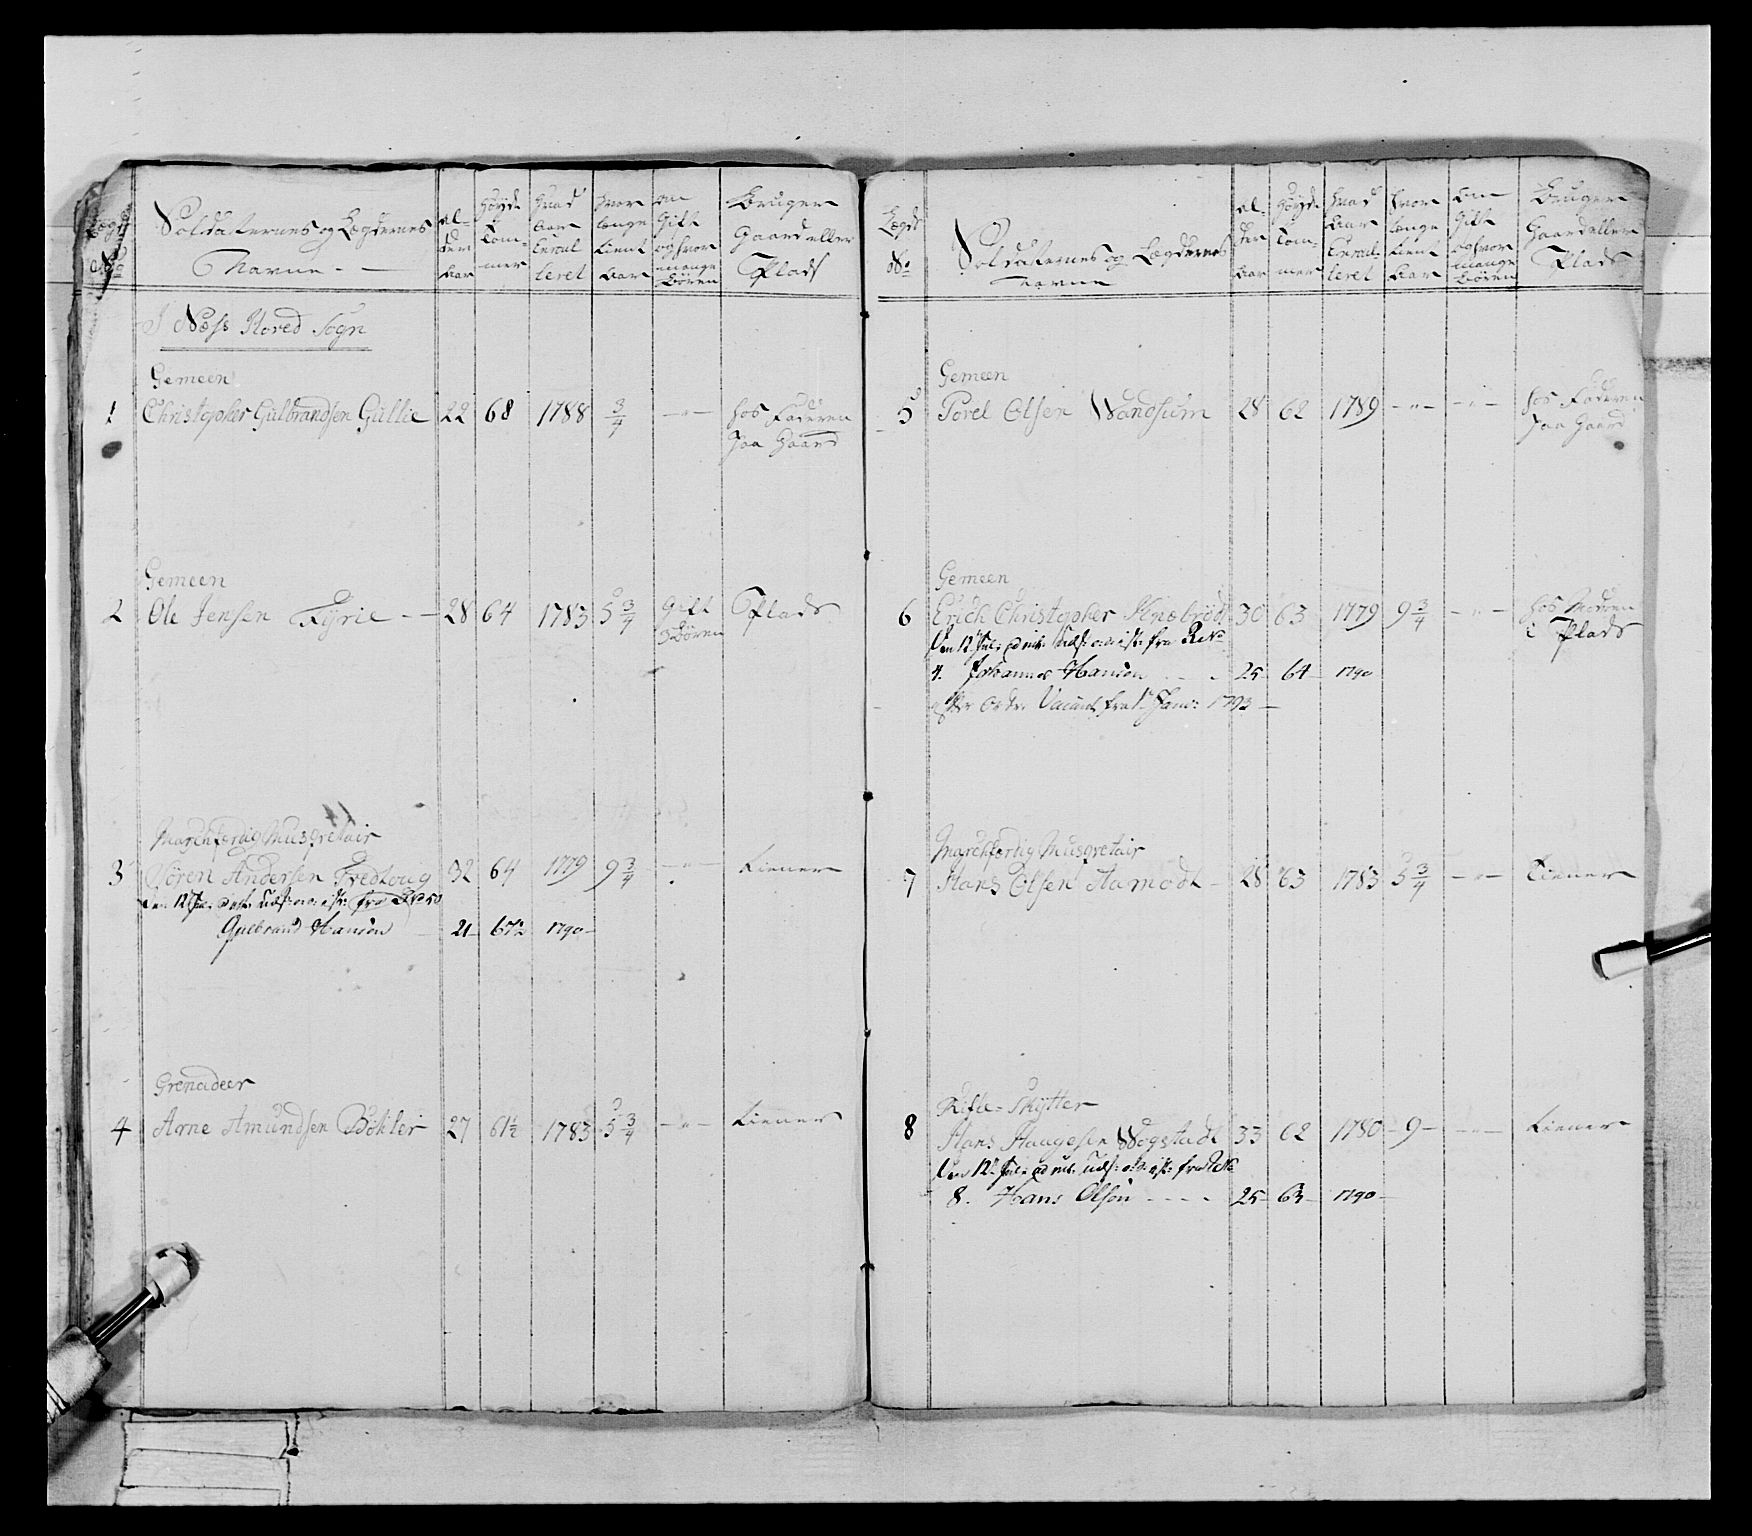 Lægd No
Soldaternes og Lægdernes Navne
Al- der Aar
Høyde Tom- mer
Hvad Aar Enroul- leret
Hvor længe tient Aar
Om Gift og hvor mange Børen
Bruger Gaard eller Plads
I Næss Hoved Sogn
Gemeen
1 Christopher Gulbrandsen Gullie 22 68 1788 3/4 -"- hos Faderen
paa Gaard
Gemeen
2 Ole Jensen Kyrie 28 64 1783 5 3/4 Gift Plads
3 Børen
Marchfærdig Musqvetair
3 Sören Andersen Fredhoug 32 64 1779 9 3/4 -"- tiener
Den 12 Jul:
Gulbrand Hansøn 21 67 1/2 1790
Grenadeer
4 Arne Amundsen Böhler 27 61 1/2 1783 5 3/4 -"- tiener
Lægd No
Soldaternes og Lægdernes Navne
Al- der Aar
Høyde Tom- mer
Hvad Aar Enroul- leret
Hvor længe tient Aar
Om Gift og hvor mange Børen
Bruger Gaard eller Plads
Gemeen
5 Porel Olsen Wandsum 28 62 1789 -"- -"- hos Faderen
paa Gaard
Gemeen
6 Erich Christopher 30 63 1779 9 3/4 -"- hos Moderen
i Plads
Den 12 Jul: fra
4. Johannes Hansøn 25 64 1790
efter Ordr: Vacant fra 1 Janv: 1793
Marchfærdig Musqvetair
7 Hans Olsen Aamodt 28 63 1783 5 3/4 -"- Tiener
Rifle-Skytter
8 Hans Haagesen Wogstadt 33 62 1780 9 -"- tiener
Den 12 Jul: fra
8. Hans Olsøn 25 63 1790